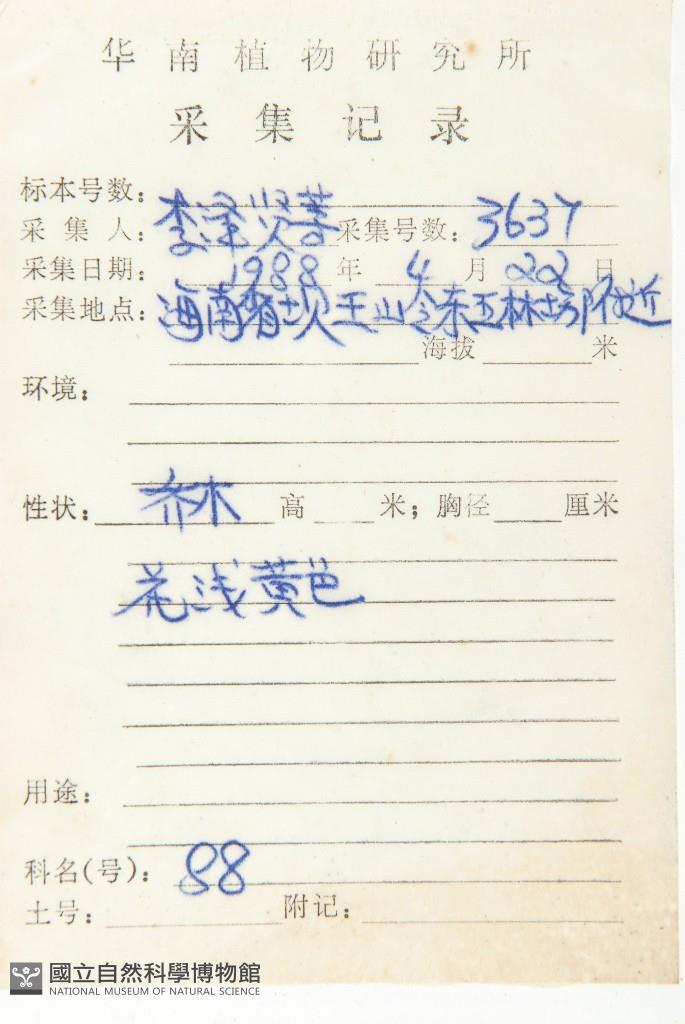 华南植物研究所
采集记录
标本号数:
采集人: 李泽贤等 采集号数: 3637
采集日期: 1988 年 4 月 22 日
采集地点: 海南省坝王山岭东五林场附近
海拔 米
环境:
性状: 乔木 高 米; 胸径 厘米
花浅黄色
用途:
科名(号): 88
土号: 附记:
國立自然科學博物館
NATIONAL MUSEUM OF NATURAL SCIENCE